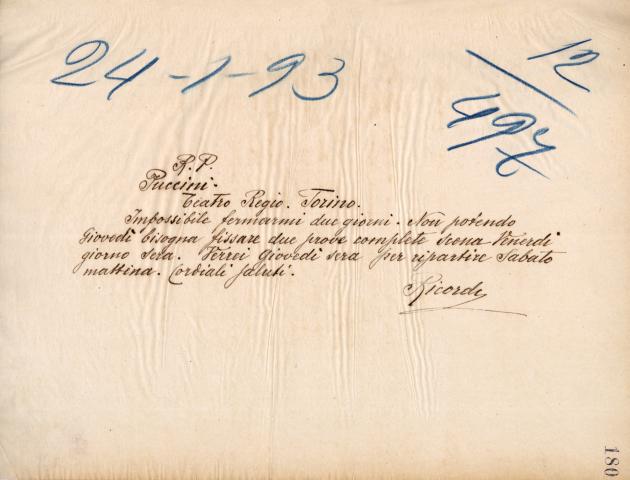 24-1-93
12
497
R. P.
Puccini.
Teatro Regio. Torino.
Impossibile fermarmi due giorni. Non potendo
Giovedì bisogna fissare due prove complete scena Venerdì
giorno sera. Verrei Giovedì sera per ripartire Sabato
mattina. Cordiali saluti.
Ricordi
180